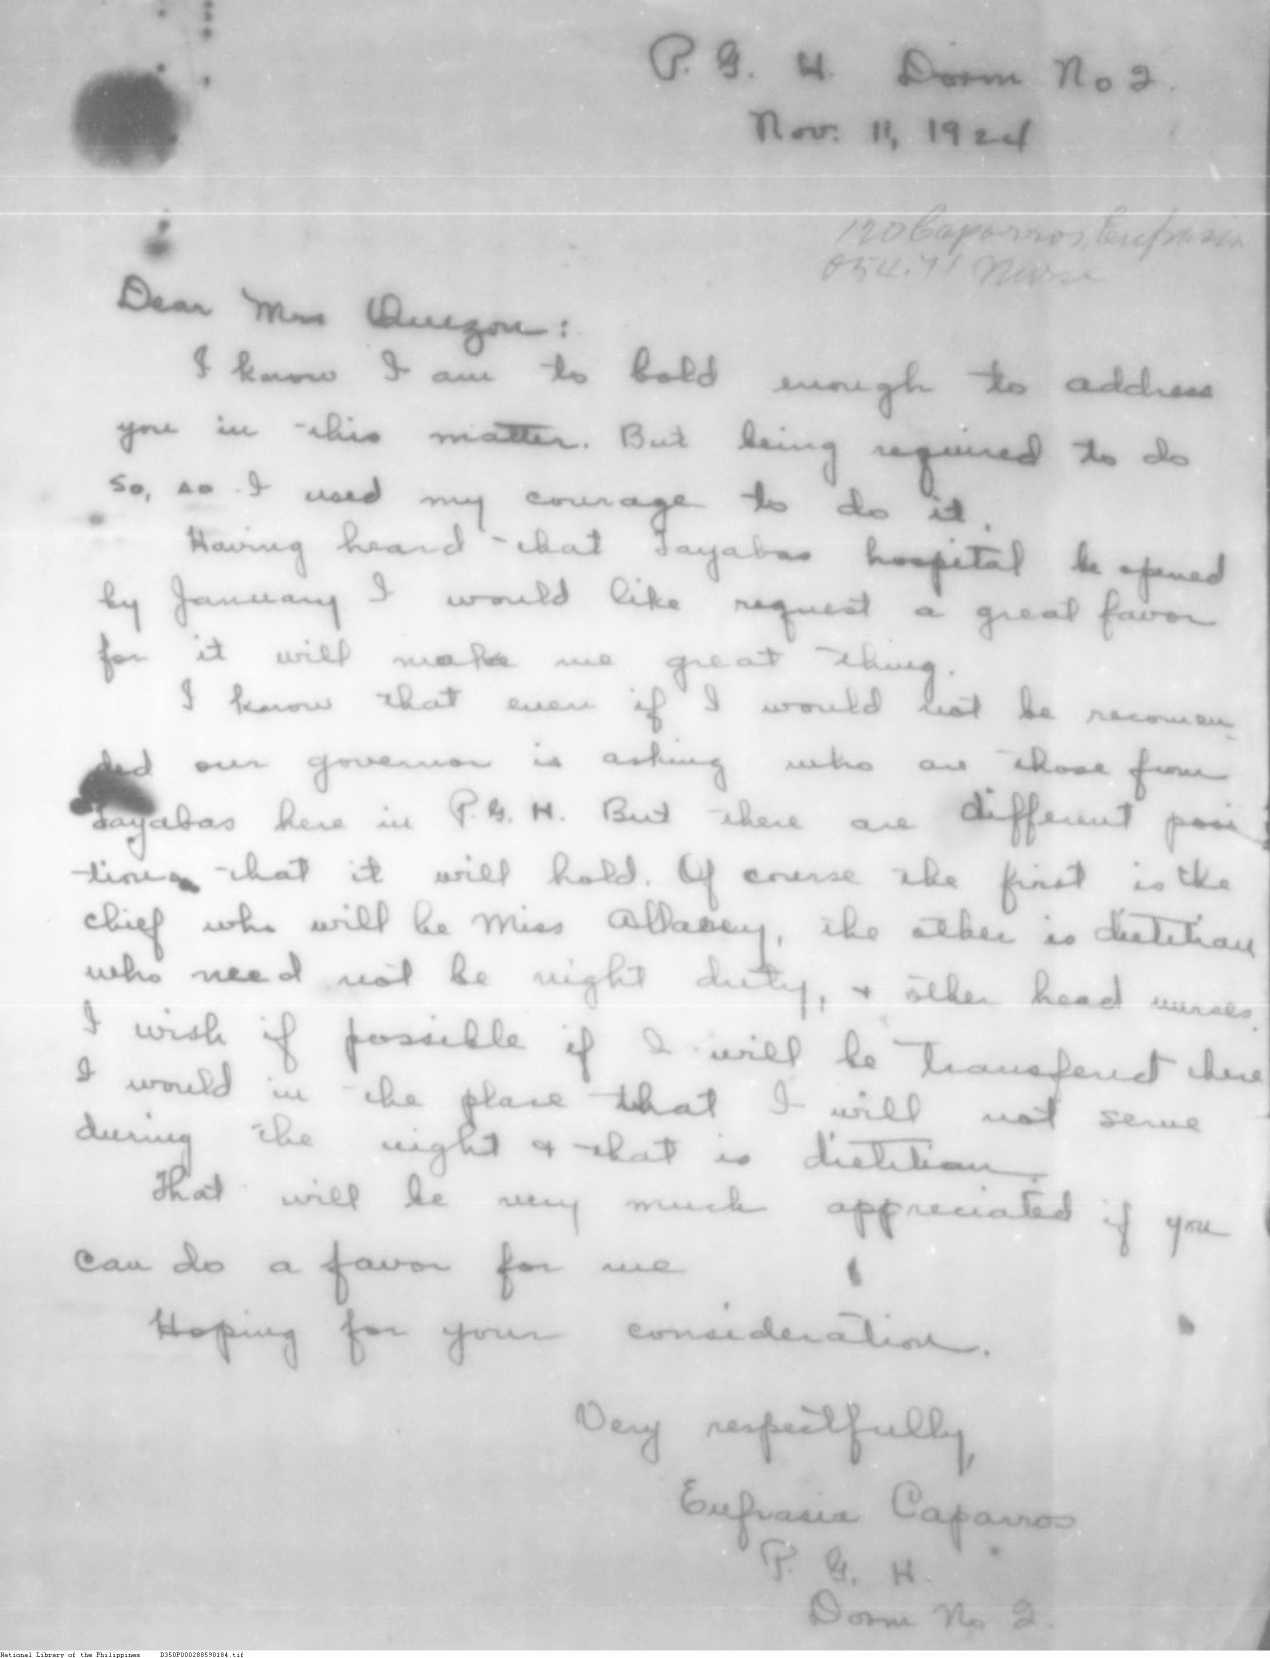 P. G. H. Dorm No 2.
Nov. 11, 1924
120 Caparros, Eufrasia
Nurse
Dear Mrs Quezon:
I know I am to bold enough to address
you in this matter. But being required to do
so, so I used my courage to do it.
Having heard that Tayabas hospital be opened
by January I would like request a great favor
for it will make me great thing.
I know that even if I would not be recomen-
ded our governor is asking who are those from
Tayabas here in P. G. H. But there are different posi
tions that it will hold. Of course the first is the
chief who will be Miss the other is dietitian
who need not be night duty, + other head nurses.
I wish if possible if I will be transferred there
I would in the place that I will not serve
during the night + that is dietitian.
That will be very much appreciated if you
can do a favor for me
Hoping for your consideration.
Very respectfully,
Eufrasia Caparros
P. G. H.
Dorm No 2.
National Library of the Philippines D350P000288598184.tif